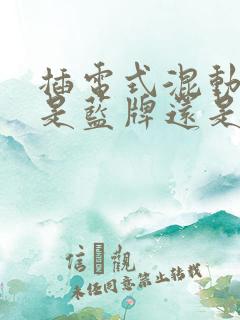 插電式混動
是藍牌還是
信 觀
未任同意禁止轉載